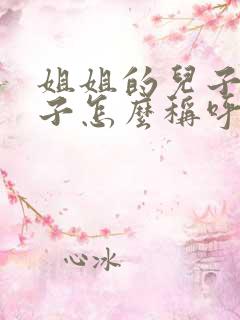 姐姐的兒子
子怎麼稱呼
心冰